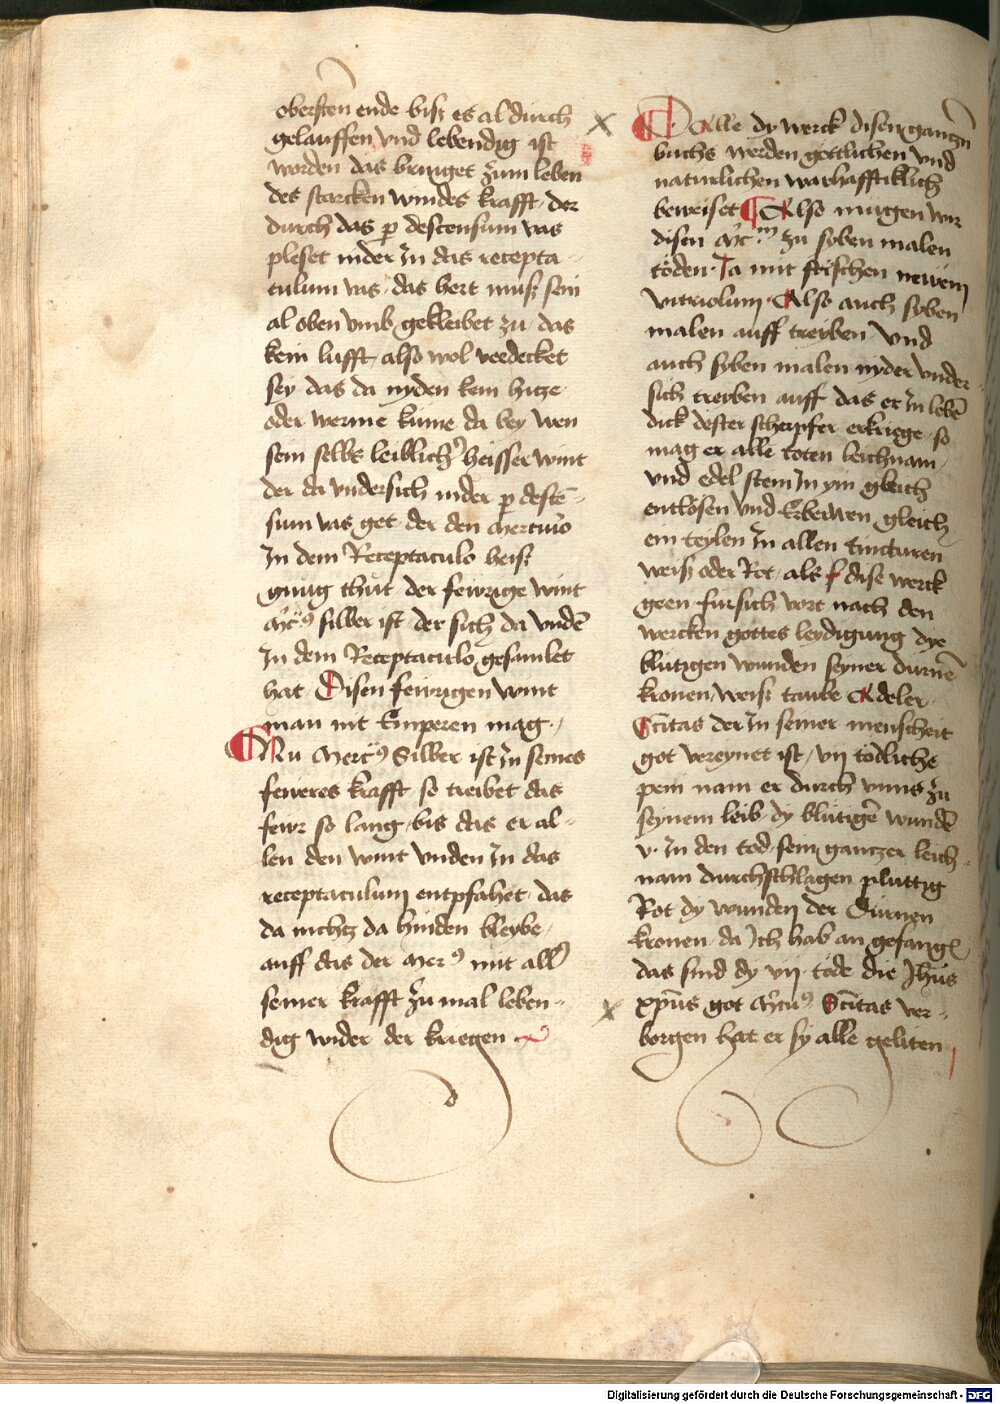 obersten ende biß es al durch
gelauffen vnd lebendig ist
worden das bringet zum leben
des starcken windes krafft der
durch das p descensum vas
pleset nider In das recepta-
culum vas das hert muß sein
al oben vmb gekleibet zu das
kein lufft also wol verdecket
sey das da nyden kein hitze
oder werme kume da bey wen
sein selbs leiblich heisser wint
der da vndersich nider p desce-
sum vas get der den mercurio
In dem Receptaculo heiß
gnug thut der fewrige wint
silber ist der sich da vnde
In dem Receptaculo gesamlet
hat Disen fewrigen wint
man nit Emperen mag
Nu Silber ist In seines
feweres krafft so treibet das
fewr so lang bis das er al-
len den wint vnden In das
receptaculum entpfahet das
da nichtz da hinden bleybe
auff das der mit all
seiner krafft zu mal leben-
dig wider der kriegen
Da Alle dy werck disen gantzn
buchs werden gottlichen vnd
naturlichen warhafftiklich
beweiset Also mugen wir
disen zu syben malen
toden Ja mit frischen newem
vitriolum Also auch syben
malen auff treyben vnd
auch syben malen nyder vnder
sich treyben auff das er In lebe
dick dester scherpfer erkriege so
mag er alle toten leichnam
vnd edel stein In ym gleich
entlosen vnd Erberwen gleich
ein teylen In allen tincturen
weiß oder Rot als dise werck
geen fursich vort nach den
wercken gottes leydigung dye
blutigen wunden seyner durne
kronen weiß taube Adeler
der In seiner menscheit
got vereynet ist vij todliche
pein nam er durch vnns zu
seynem leib dy blutige wunde
v In den tod sein gantzer leich-
nam durchschlagen pluttig
Rot dy wunden der Durnen
kronen da Ich hab an gefang
das sind dy vij tode die Jhus
xpus got ver-
borgen hat er sy alle geliten
Digitalisierung gefördert durch die Deutsche Forschungsgemeinschaft - DFG